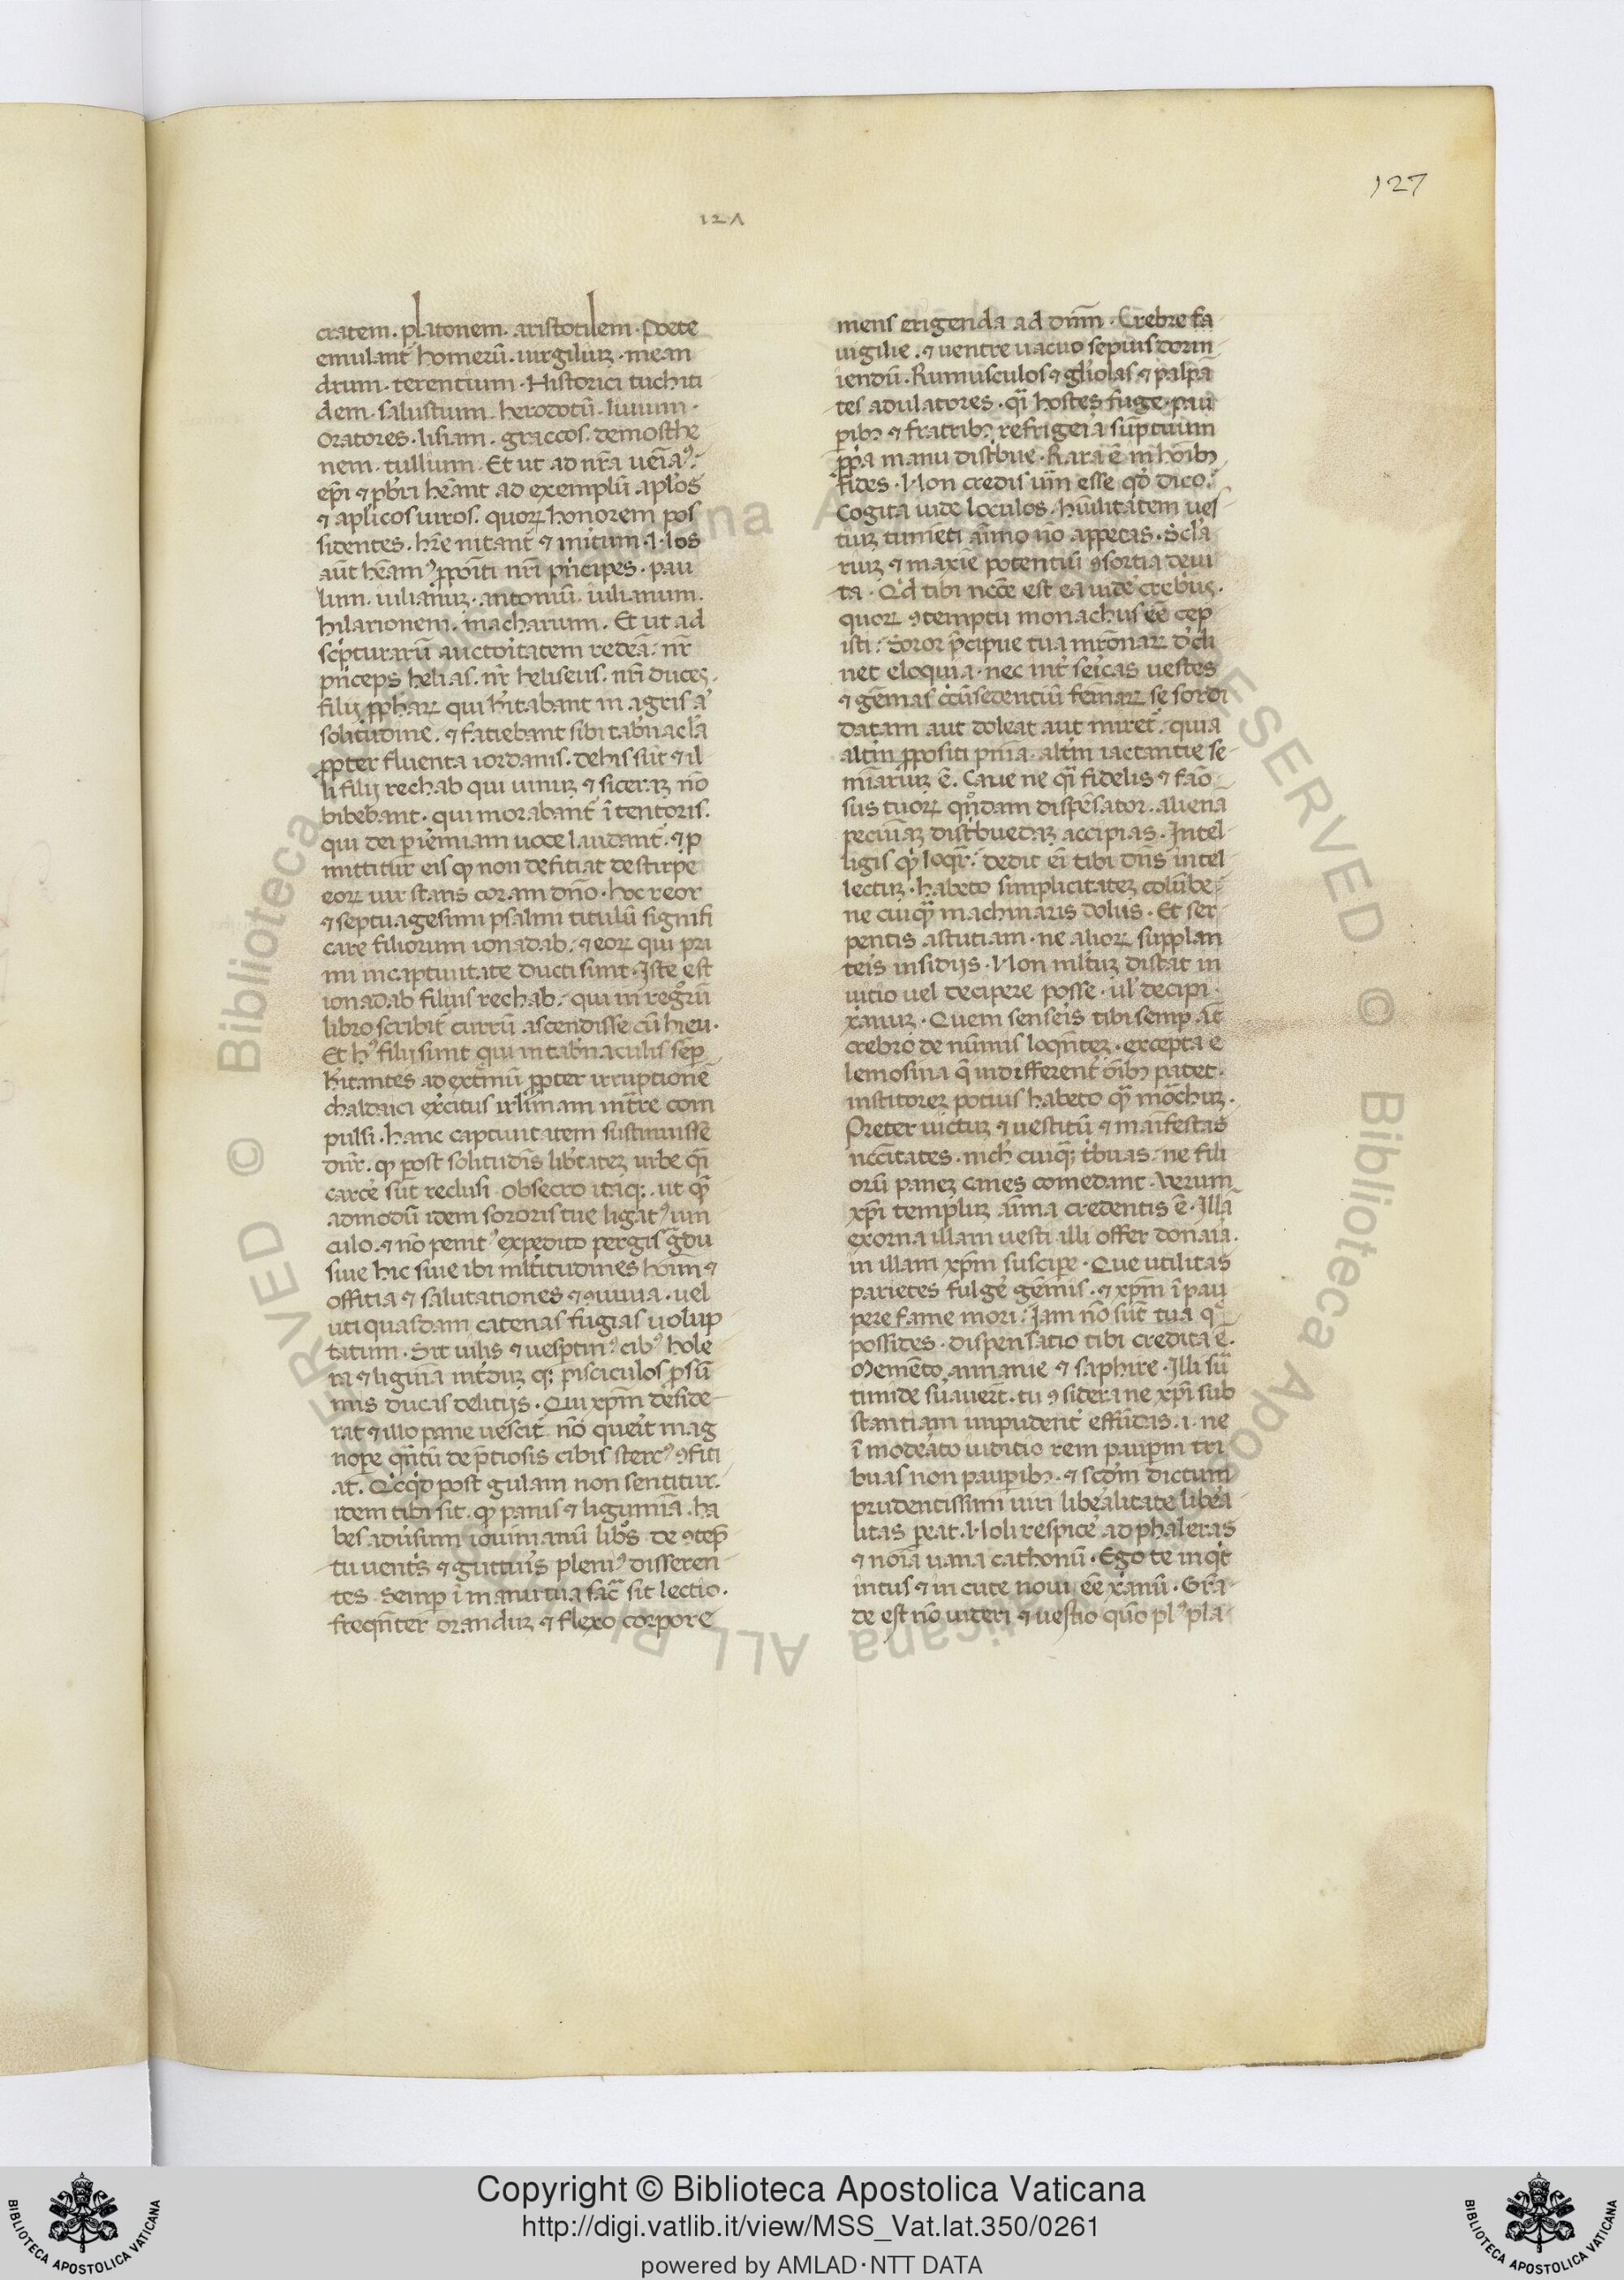 127
121
cratem. platonem. aristotilem. Poete
emulant̃ homerũ. uirgiliuꝫ. mean
drum. terentium. Historici tuchiti
dem. salustium. herodotũ. liuium.
Oratores. lisiam. graccos. demosthe
nem. tullium. Et ut ad nr̃a
ep̃i ⁊ pb̃ri hẽant ad exemplũ apl̃os
⁊ apl̃icos uiros. quoꝝ honorem pos
sidentes. hr̃e nitant̃ ⁊ mitum.
aũt principes. pau
lum. iulianuꝫ. antoniũ. iulianum.
hilarionem. macharium. Et ut ad
sc̃pturarũ auctoritatem redeã. nr̃
pñceps helias. nr̃ heliseus. nr̃i duces.
filij ꝓphaꝝ qui hĩtabant in agris ⁊
solitudine. ⁊ fatiebant sibi tab̃nacl̃a
ꝓpter fluenta iordanis. de his sũt ⁊ il
li filij rechab qui uinuꝫ ⁊ siceraꝫ nõ
bibebant. qui morabant̃ ĩ tentoris.
qui dei p ieremiam uoce laudant̃. ⁊ ꝓ
mittitur eis ꝙ non defitiat de stirpe
eoꝝ uir stans coram dñō. hoc reor
⁊ septuagesimi psalmi titulũ signifi
care filiorum ionadab. ⁊ eoꝝ qui pri
mi in captiuitate ducti sunt. Iste est
ionadab filius rechab. qui in regnoꝝ
libro scribit̃ currũ ascendisse cũ hieu.
Et hꝰ filij sunt qui in tab̃naculis semꝑ
hĩtantes ad extremũ ꝓpter irruptionẽ
chaldaici exercitus irl̃imam intrare com
pulsi. hanc captiuitatem sustinuisse
dñr. ꝙ post solitudĩs lib̃tateꝫ urbe q̃i
carcẽ sũt reclusi. Obsecro itaqꝫ. ut q̃
admodũ idem sororis tue ligatꝰ uin
culo. ⁊ nõ penitꝰ expedito pergis g̃du
siue hic siue ibi ml̃titudines hoĩm ⁊
offitia ⁊ salutationes ⁊ ꝯuiuia. uel
uti quasdam catenas fugias uolup
tatum. Sit uilis ⁊ uesptinꝰ cibꝰ hole
ra ⁊ ligumĩa interduꝫ qꝫ pisciculos ꝓ sũ
mis ducas delitijs. Qui xp̃m deside
rat ⁊ illo pane uescit̃ nõ querit mag
nope q̃ntũ de p̃tiosis cibis stercꝰ ꝯfiti
at. Q̃cq̃d post gulam non sentitur.
idem tibi sit. ꝙ panis ⁊ ligumĩa. ha
bes aduersum iouinianũ libros de ꝯtep̃
tu uentris ⁊ gutturis pleniꝰ disseren
tes. Semꝑ ĩ manu tua sac̃ sit lectio.
freq̃nter oranduꝫ ⁊ flexo corpore
mens erigenda ad dñm. Crebre fa
uigilie. ⁊ uentre uacuo sepius dorm
iendũ. Rumusculos ⁊ gl̃iolas ⁊ palpã
tes adulatores. q̃i hostes fuge. pau
pibꝫ ⁊ fratribꝫ refrigeria sũptuum
ꝓpria manu distribue. Rara ẽ in hoĩbꝫ
fides. Non credis uer̃m esse qđ dico.
Cogita iude loculos. humilitatem ues
tiuꝫ tumẽti ãnimo nõ appetas. Sc̃la
riuꝫ ⁊ maxie potentiũ ꝯsortia deui
ta. Q̃d tibi necc̃e est ea uidẽ crebriꝰ.
quoꝝ ꝯtemptu monachus eẽ cep
isti. Soror p̃cipue tua mr̃onaꝝ decli
net eloquia. nec int̃ sericas uestes
⁊ gẽmas circũsedentiũ fem̃aꝝ se sordi
datam aut doleat aut miret̃. quia
altm̃ ꝓpositi pnĩa. altm̃ iactantie se
minariuꝫ ẽ. Caue ne q̃i fidelis ⁊ fao
sus tuoꝝ quondam dispẽsator. alienã
pecuniaꝫ distribuẽdaꝫ accipias. Intel
ligis ꝙ loq̃r. dedit ei tibi dñs intel
lectuꝫ. habeto simplicitateꝫ colũbe
ne cuiq̃ machinaris dolus. Et ser
pentis astutiam. ne alioꝝ supplan
teris insidijs. Non ml̃tuꝫ distat in
uitio uel decipere posse. ul̃ decipi
xr̃ianuꝫ. Quem senseris tibi semp aut̃
crebro de nũmis loq̃nteꝫ. excepta e
lemosina q̃ indifferent̃ oĩbꝫ patet.
institoreꝫ potius habeto q̃ mõchuꝫ.
Preter uictuꝫ ⁊ uestitũ ⁊ manifestas
necc̃itates. nich̃ cuiqꝫ tribuas. ne fili
orũ paneꝫ canes comedant. Verum
xp̃i templuꝫ anima credentis ẽ. Illã
exorna illam uesti illi offer donaria.
in illam xp̃m suscipe. Que utilitas
parietes fulgẽ gẽmis. ⁊ xp̃m ĩ pau
pere fame mori. Iam nõ sũt tua q̃
possides. dispensatio tibi credita ẽ.
Memẽto annanie ⁊ saphire. Illi sua
timide suauer̃t. tu ꝯsidera ne xp̃i sub
stantiam impudent̃ effũdas. i. ne
ĩmoderato iuditio rem paupm tri
buas non paupibꝫ. ⁊ scd̃m dictum
prudentissimi uiri liberalitate libera
litas peat. Noli respicẽ ad phaleras
⁊ noĩa uana cathonũ. Ego te inq̃t
intus ⁊ in cute noui eẽ xr̃ianũ. Grã
de est nõ uideri ⁊ uestio quõ plꝰ pla
Copyright © Biblioteca Apostolica Vaticana
http://digi.vatlib.it/view/MSS_Vat.lat.350/0261
powered by AMLAD·NTT DATA
BIBLIOTECA APOSTOLICA VATICANA
BIBLIOTECA APOSTOLICA VATICANA